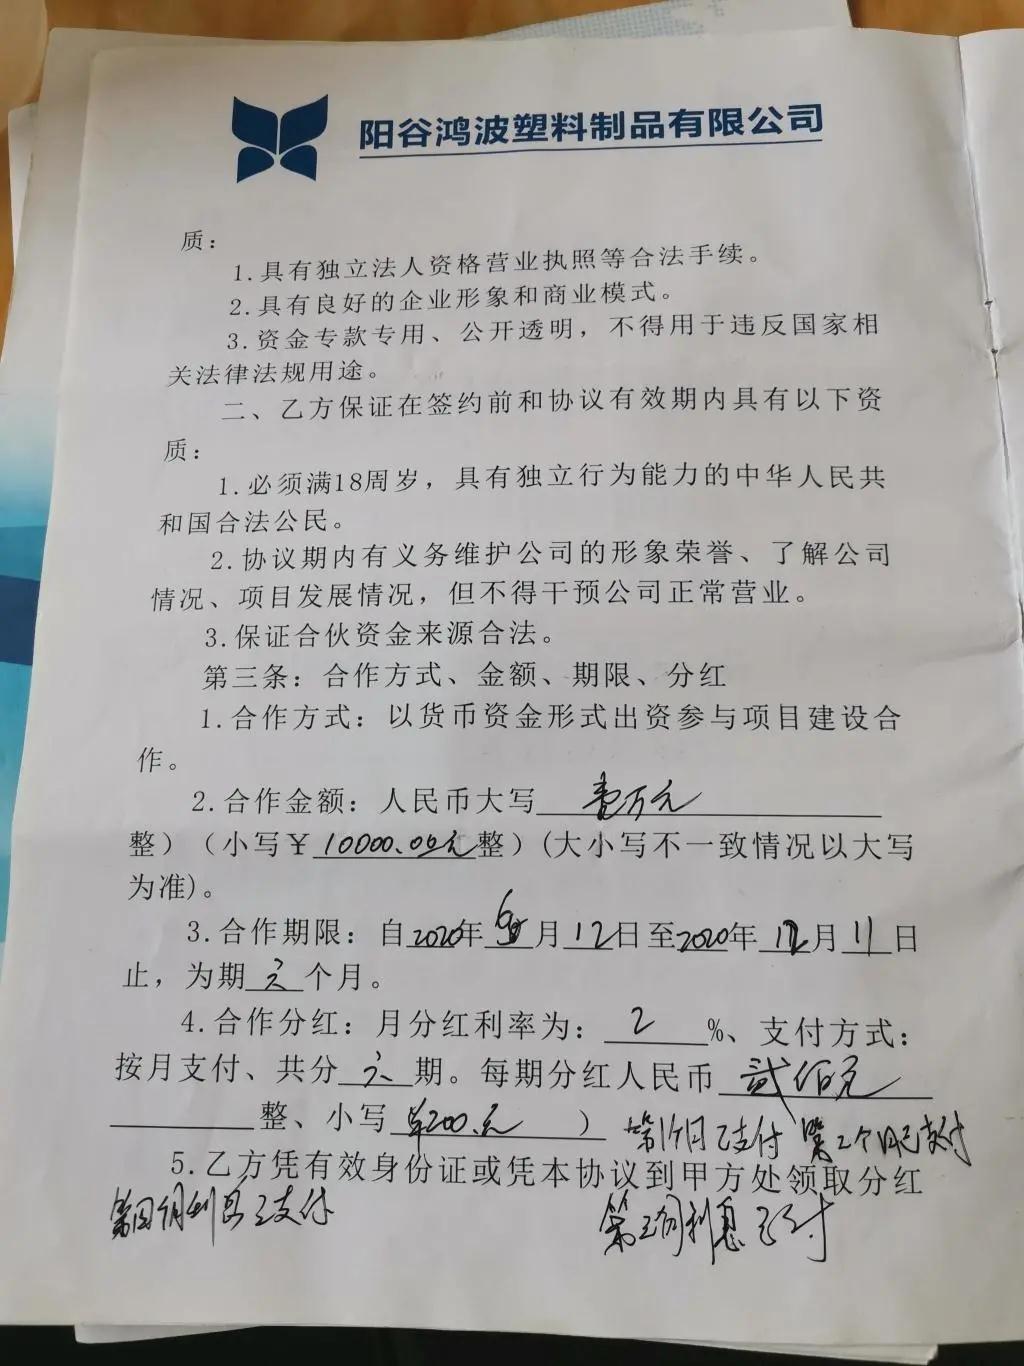 阳谷鸿波塑料制品有限公司
质：
1.具有独立法人资格营业执照等合法手续。
2.具有良好的企业形象和商业模式。
3.资金专款专用、公开透明，不得用于违反国家相
关法律法规用途。
二、乙方保证在签约前和协议有效期内具有以下资
质：
1.必须满18周岁，具有独立行为能力的中华人民共
和国合法公民。
2.协议期内有义务维护公司的形象荣誉、了解公司
情况、项目发展情况，但不得干预公司正常营业。
3.保证合伙资金来源合法。
第三条：合作方式、金额、期限、分红
1.合作方式：以货币资金形式出资参与项目建设合
作。
2.合作金额：人民币大写 壹万元
整）（小写￥ 10000.00元 整）(大小写不一致情况以大写
为准)。
3.合作期限：自2020年 6 月 12 日至2020年 12 月 11 日
止，为期 六 个月。
4.合作分红：月分红利率为： 2 %、支付方式：
按月支付、共分 六 期。每期分红人民币 贰佰元
整、小写 200.元 ） 第1个月已支付 第2个月已支付
5.乙方凭有效身份证或凭本协议到甲方处领取分红
第四个月利息已支付 第三个月利息已付